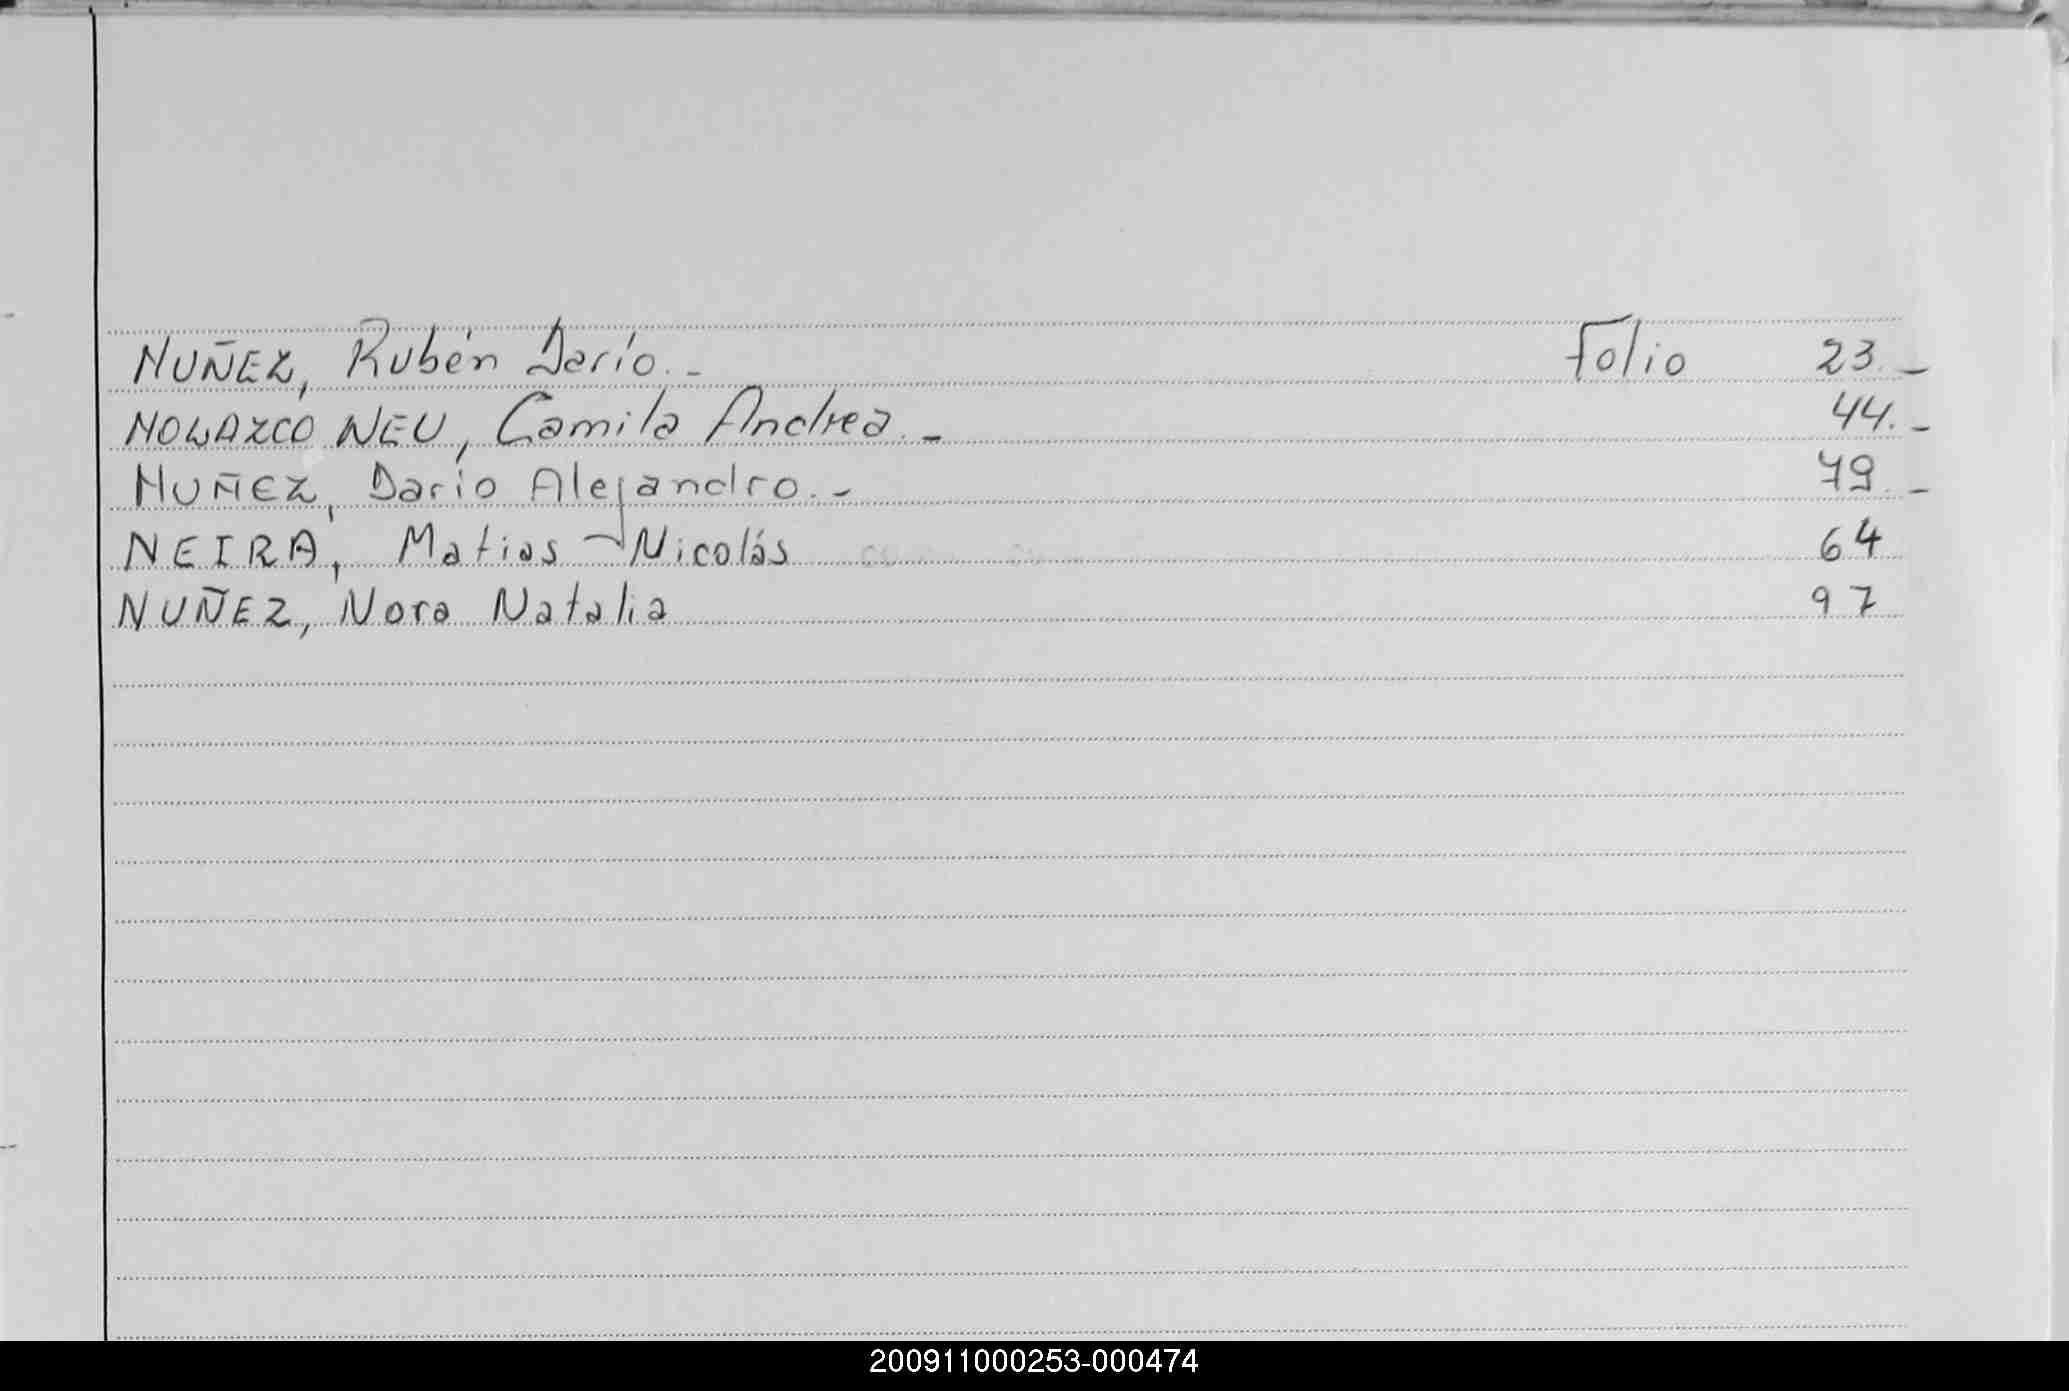 NUÑEZ, Rubén Darío.- Folio 23.-
NOWAZCO NEU, Camila Andrea.- 44.-
NUÑEZ, Darío Alejandro.- 79.-
NEIRA, Matias Nicolás 64
NUÑEZ, Nora Natalia 97
200911000253-000474